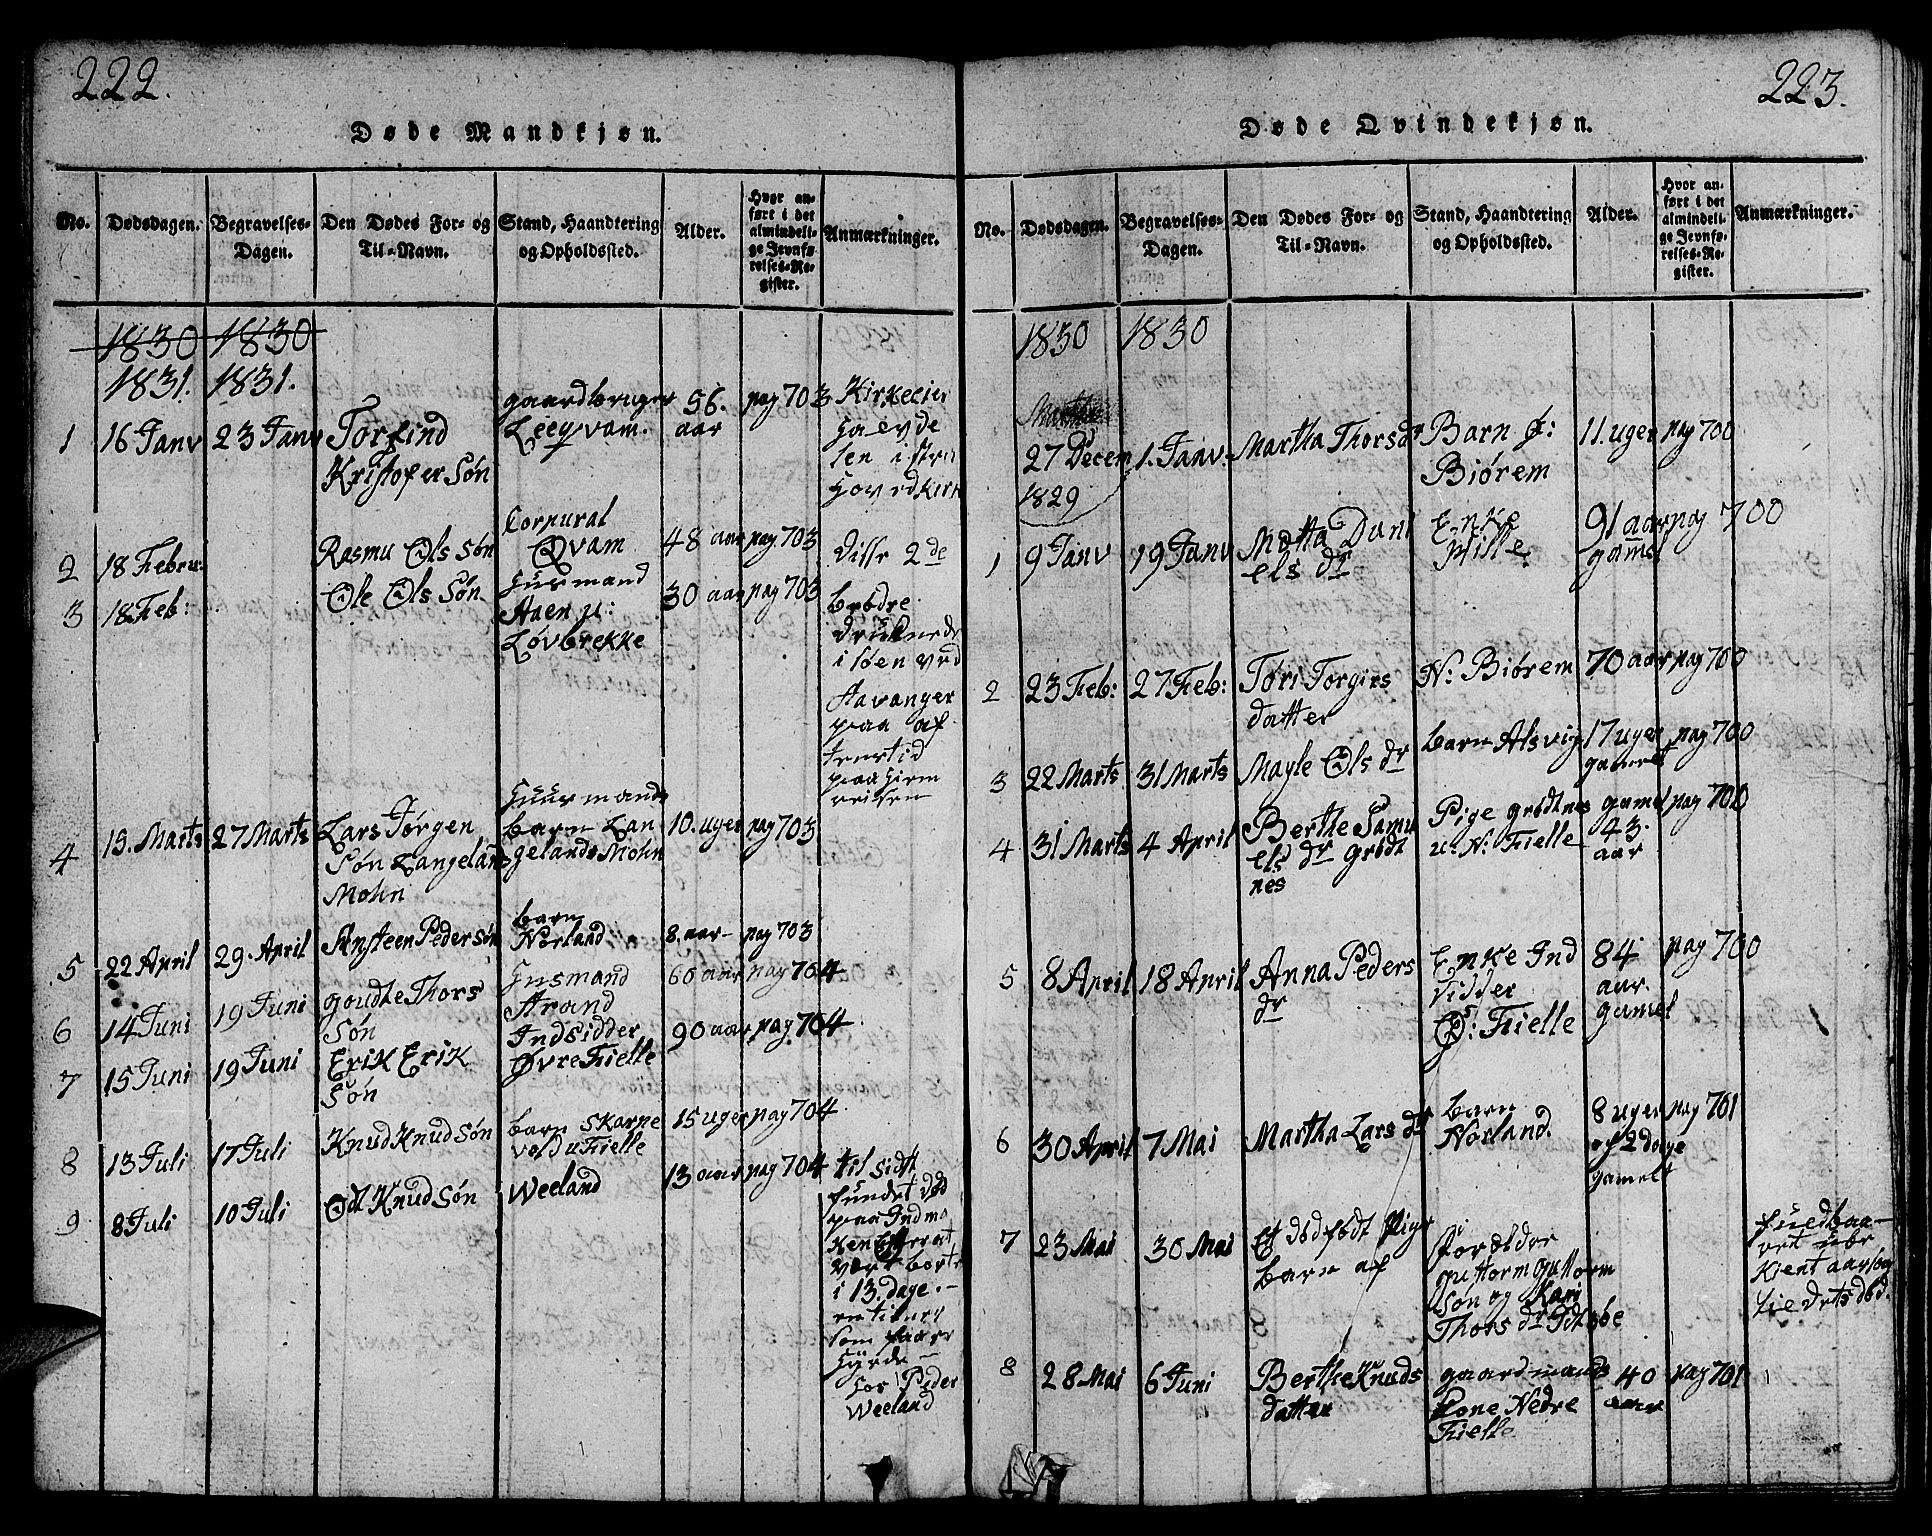 222.
Døde Mandkjøn.
No.
Dødsdagen.
Begravelses-
Dagen.
Den Dødes For- og
Til-Navn.
Stand, Haandtering
og Opholdssted.
Alder.
Hvor an-
ført i det
almindeli-
ge Jevnfø-
relses-Re-
gister.
Anmærkninger.
1830 1830
1831. 1831.
1 16 Janv 23 Janv Torfind
Kristofer Søn
gaardbruger
Leeqvam.
56.
aar
pag 703
Kirkeeier
2 18 Febru:
Rasmu Ols Søn
Corpural
Qvam
48 aar pag 703
Disse 2de
3 18 Feb:
Ole Ols Søn
Huusmand
Aaen u:
Løvbrekke
30 aar pag 703
brødre
druknede
i Søen ved
Havanger
paa af
hiem
reisen
4 19. Marts 27 Marts
Lars Jørgen
Søn Langelands
Mohn
Huusmands
barn Lan
gelands Mohn
10. uger pag 703
5 22 April 29. April
Ansteen Peder Søn
barn
Norland
8. aar- pag 703
6 14 Juni 19 Juni
goudte Thors
Søn
Husmand
Arand
60 aar pag 704
7 15 Juni 19 Juni
Erik Erik
Søn
Indsidder
Øvre Fielle
90 aar pag 704
8 13 Juli 17 Juli
Knud Knud Søn
barn Skarpe
vold u Fielle
15 uger pag 704
9 8 Juli 10 Juli
Odt Knud Søn
Weeland
13 aar pag 704
til sidst
fundet død
paa Indma
ken Efter at
vært borte
i 13. dage. -
som faare
Hyrde -
hos Peder
Weeland
223.
Døde Qvindekjøn.
No.
Dødsdagen.
Begravelses-
Dagen.
Den Dødes For- og
Til-Navn.
Stand, Haandtering
og Opholdssted.
Alder.
Hvor an-
ført i det
almindeli-
ge Jevnfø-
relses-Re-
gister.
Anmærkninger.
1830 1830
27 Decem
1829
1. Janv.
Martha Thors dr
Barn Ø:
Biørem
11. uger pag 700
1 9 Janv 19 Janv
Matta Dani
els dr
Enke
Wille
91 aar
gamel
pag 700
2 23 Feb: 27 Feb:
Tøri Torgirs
datter
N: Biørem
70 aar pag 700
3 22 Marts 31 Marts
Magle Ols dr
barn Alsvig
17 uger
gamel
pag 700
4 31 Marts 4 April
Berthe Samu
els dr Grødt
nes
Pige grødtnes
u: N: Fielle
gamel
43.
aar
pag 700
5 8 April 18 April
Anna Peders
dr
Enke Ind
sidder
Ø: Fielle
84
aar.
gamel
pag 700
6 30 April 7 Mai
Martha Lars dr
barn
Norland.
8 uger
og 2 dage
gamelt
pag 701
7 23 Mai 30 Mai
Et død født Pige
Barn af
Forældre
Guttorm Guttorm
Søn og Kari
Thors dr
ret ube
kient aarsag
til dets død.
8 28 Mai 6 Juni
Berthe Knuds
datter
gaardmands
kone Nedre
Fielle
40
aar
pag 701